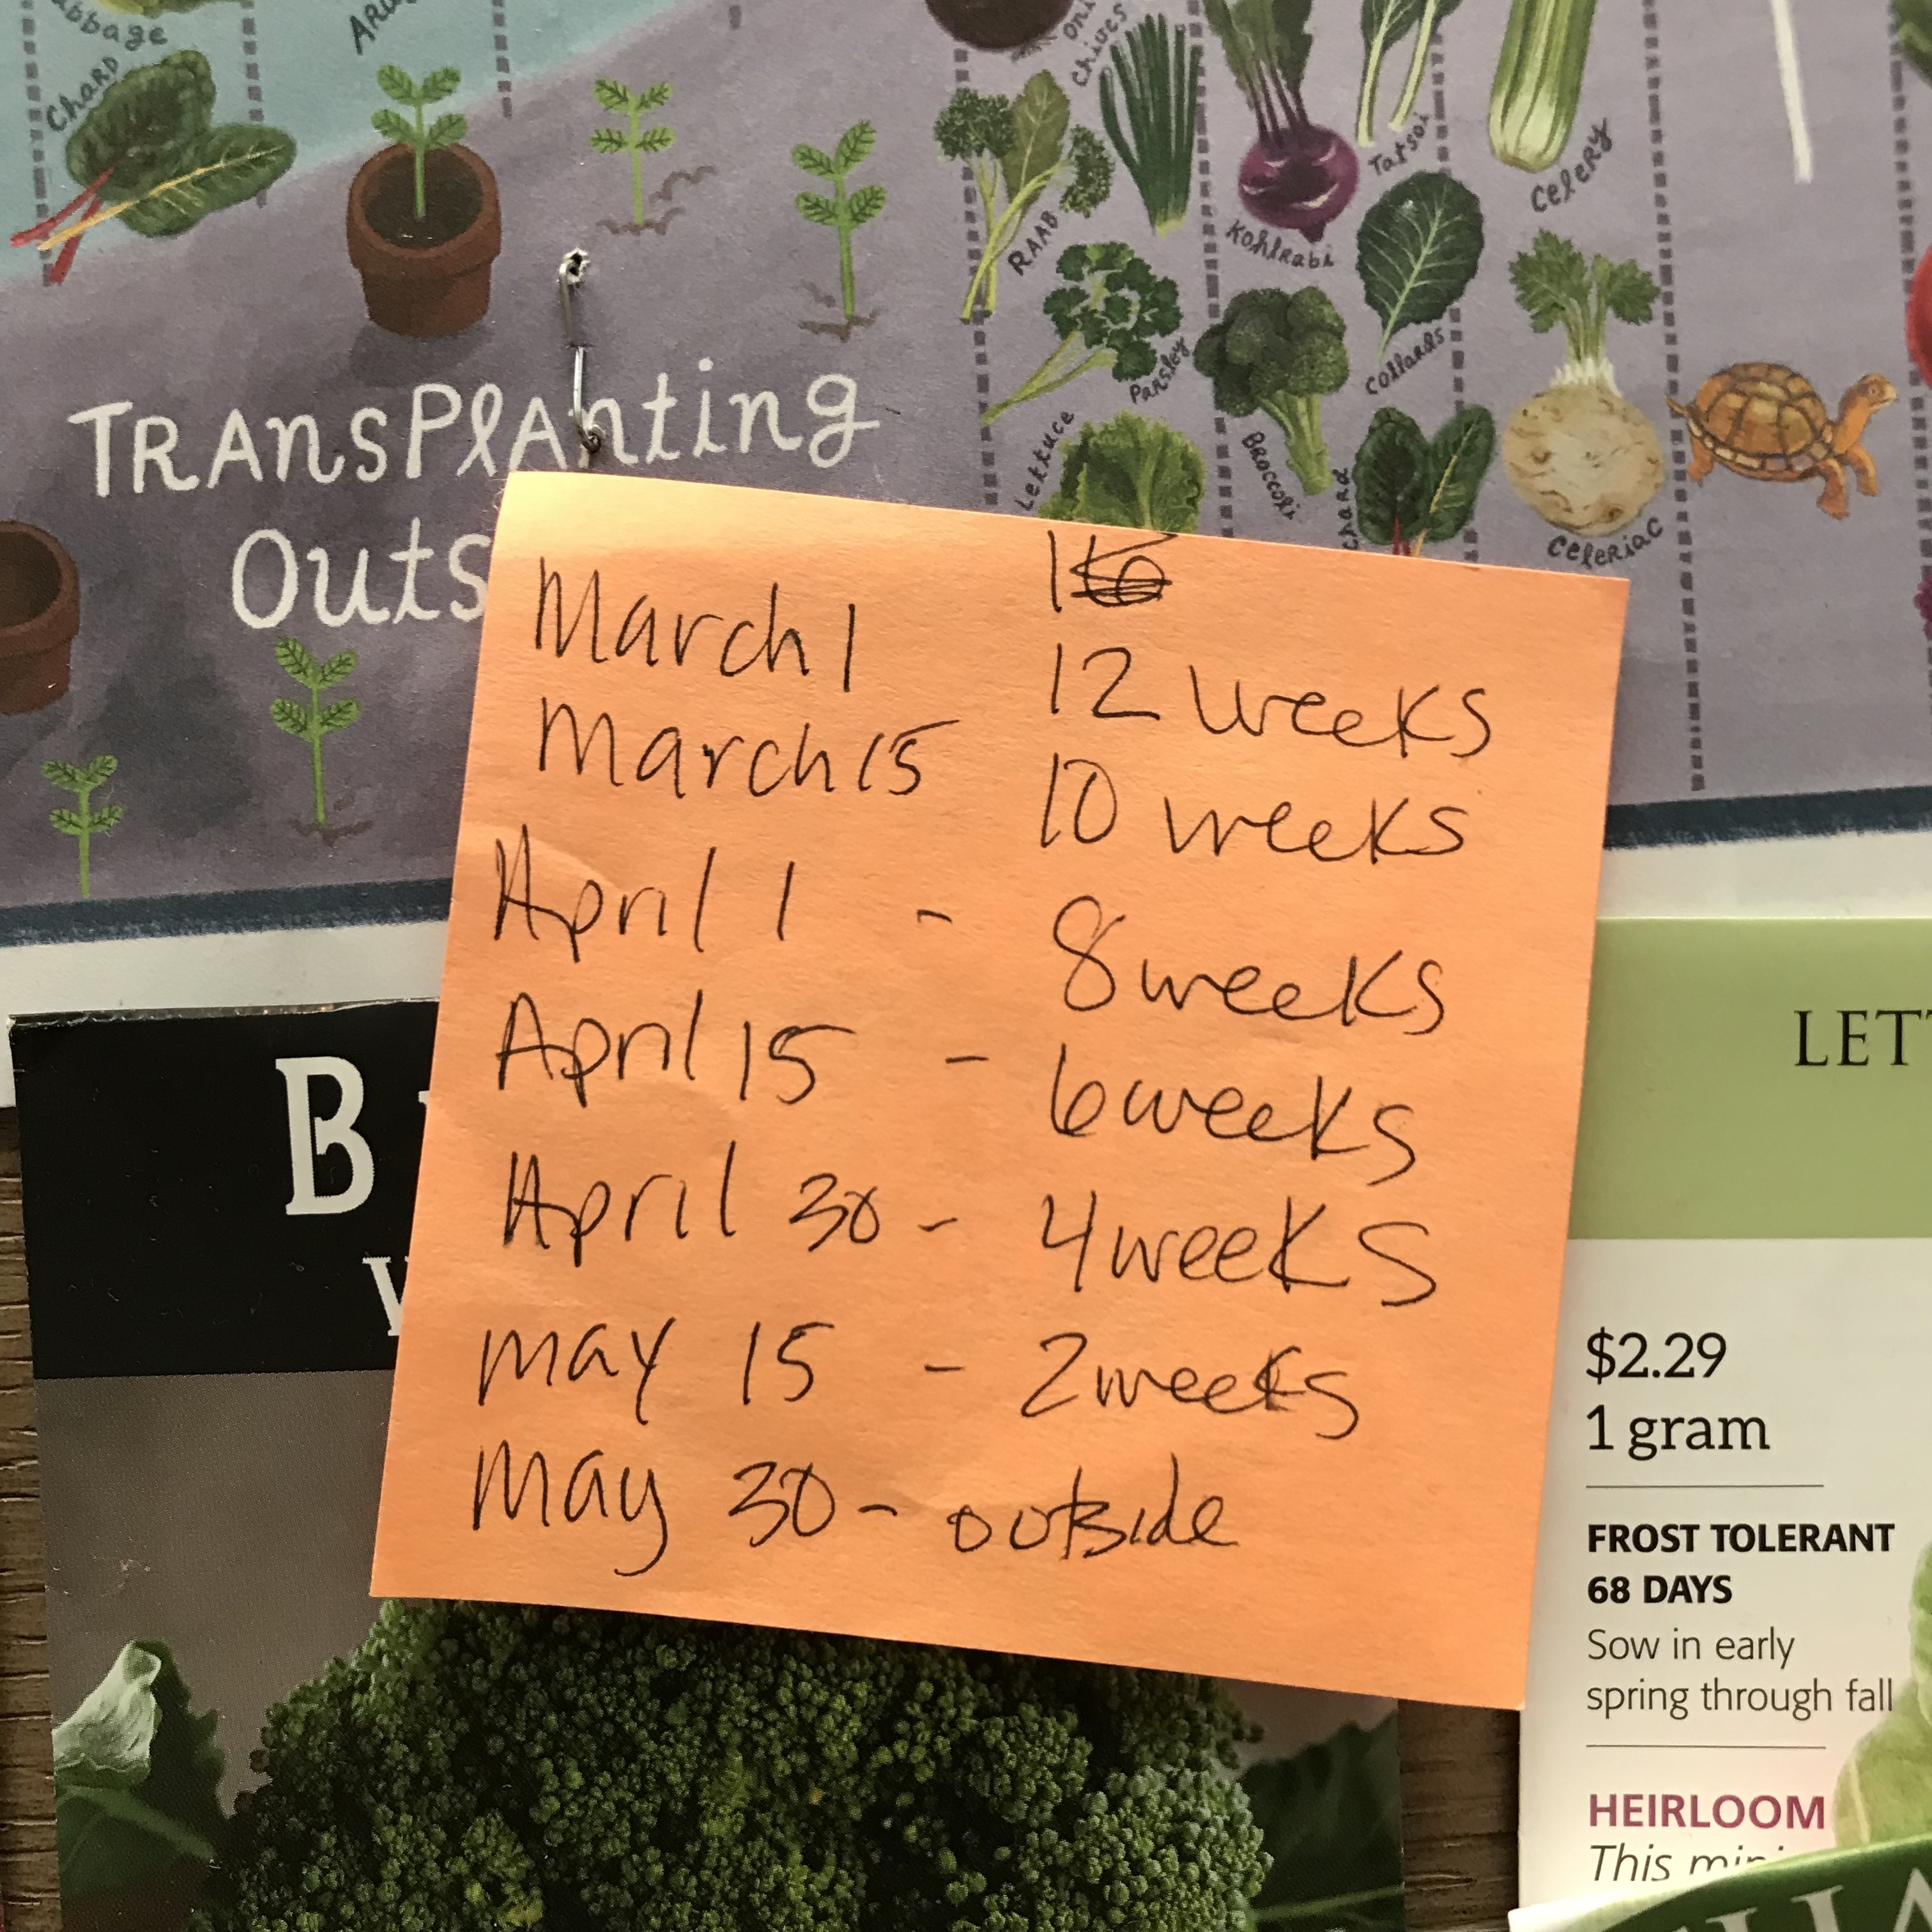 CHARD
Chives
RAAB
Kohlrabi
Tatsoi
Celery
Parsley
Collards
Lettuce
Broccoli
Chard
Celeriac
TRAnsPlAnting
March 1 12 weeks
March 15 10 weeks
April 1 - 8 weeks
April 15 - 6 weeks
April 30 - 4 weeks
May 15 - 2 weeks
May 30 - outside
B
$2.29
1 gram
FROST TOLERANT
68 DAYS
Sow in early
spring through fall
HEIRLOOM
This